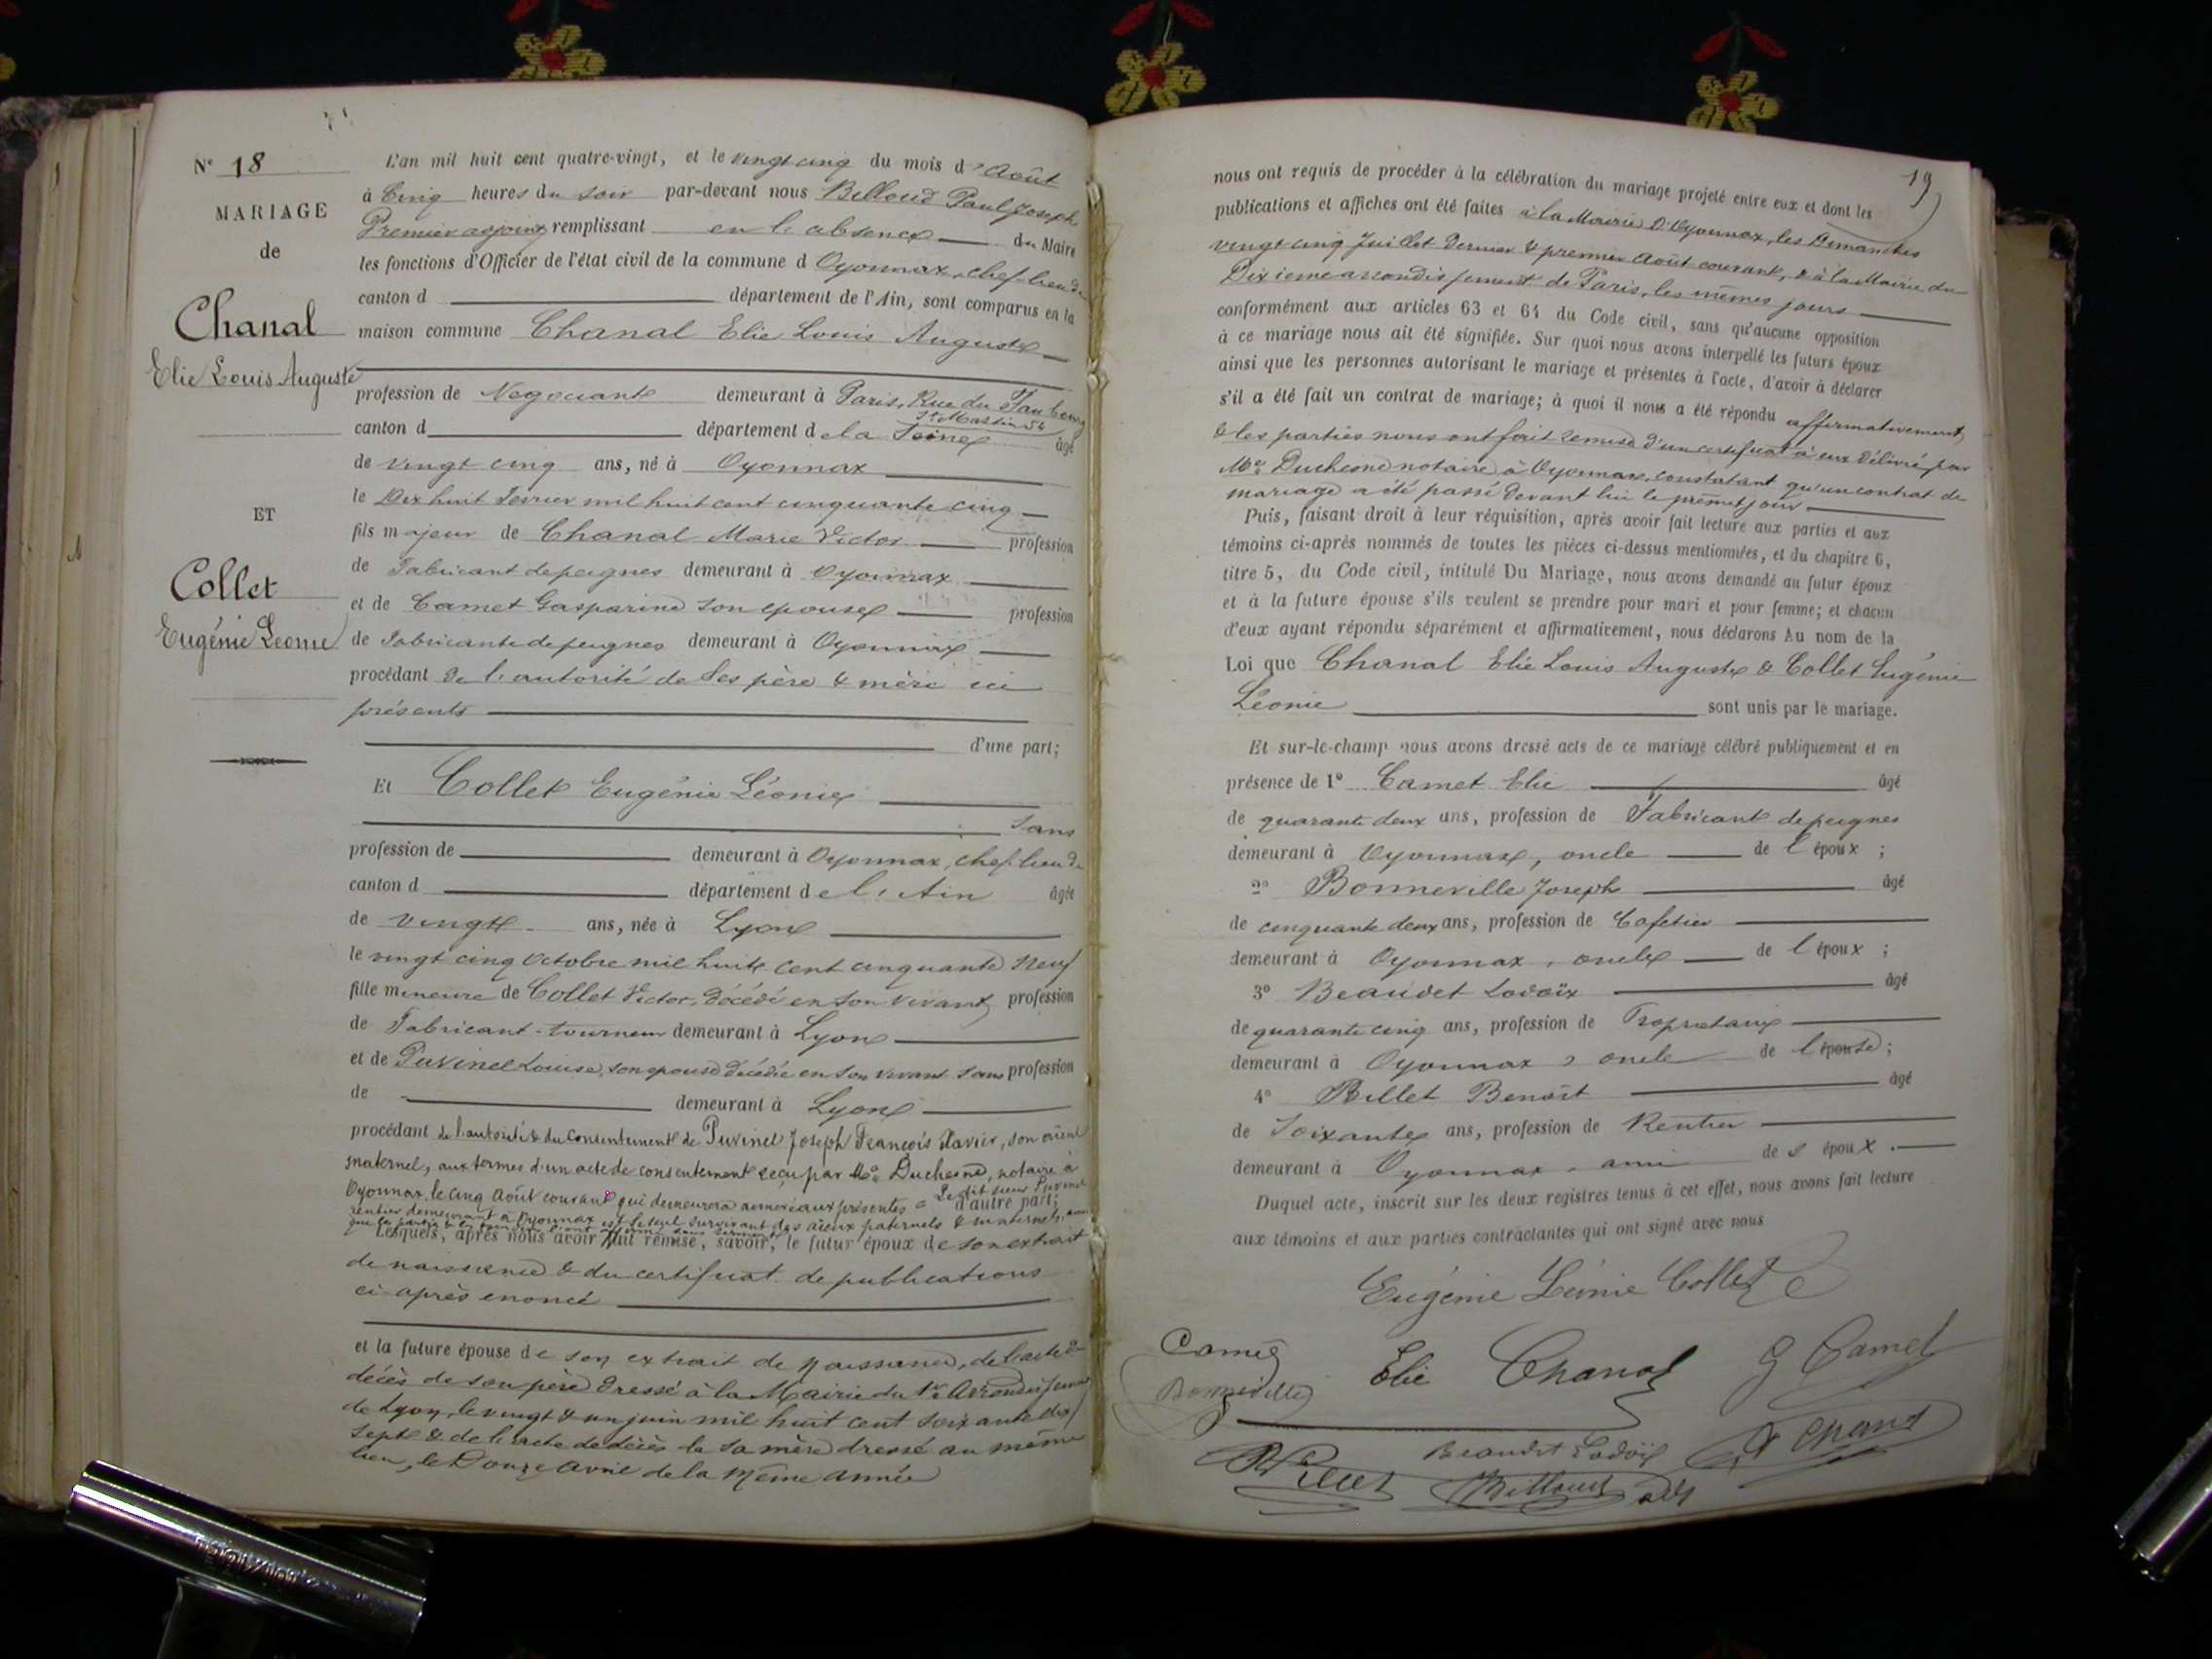 N° 18
MARIAGE
de
Chanal
Elie Louis Auguste
ET
Collet
Eugénie Leonie
L'an mil huit cent quatre-vingt, et le vingt cinq du mois d'Août
à Cinq heures du soir par-devant nous Belloud Paul Joseph
Premier adjoint remplissant en l'absence du Maire
les fonctions d'Officier de l'état civil de la commune d Oyonnax, chef-lieu de
canton d département de l'Ain, sont comparus en la
maison commune Chanal Elie Louis Auguste
profession de Negociant demeurant à Paris, Rue du Faubourg
St Martin 54
canton d département de la Seine âgé
de vingt cinq ans, né à Oyonnax
le Dix huit Fevrier mil huit cent cinquante cinq
fils majeur de Chanal Marie Victor profession
de Fabricant de peignes demeurant à Oyonnax
et de Camet Gasparine son epouse profession
de Fabricante de peignes demeurant à Oyonnax
procédant de l'autorité de ses père & mère ici
présents
d'une part;
Et Collet Eugénie Léonie
Sans
profession de demeurant à Oyonnax, chef-lieu de
canton d département de l'Ain âgée
de vingt ans, née à Lyon
le vingt cinq Octobre mil huit cent cinquante neuf
fille mineure de Collet Victor, décédé en son vivant profession
de Fabricant-tourneur demeurant à Lyon
et de Puvinel Louise, son epouse décédée en son vivant sans profession
de demeurant à Lyon
procédant de l'autorité & du consentement de Puvinel Joseph François Xavier, son aieul
maternel, aux termes d'un acte de consentement reçu par Me Duchesne, notaire à
Oyonnax, le cinq Août courant qui demeurera annexé aux présentes = Le dit sieur Puvinel
d'autre part;
rentier demeurant à Oyonnax est le seul survivant des aieux paternels & maternels,
que les parties & les témoins l'ont affirmé sous serment
Lesquels, après nous avoir fait remise, savoir, le futur époux de son extrait
de naissance & du certificat de publications
ci après enoncé
et la future épouse de son extrait de naissance, de l'acte de
décès de son père dressé à la Mairie du 1er Arrondissement
de Lyon, le vingt & un juin mil huit cent soixante dix
sept & de l'acte de décès de sa mère dressé au même
lieu, le Douze Avril de la même année
19
nous ont requis de procéder à la célébration du mariage projeté entre eux et dont les
publications et affiches ont été faites à la Mairie d'Oyonnax, les Dimanches
vingt cinq Juillet dernier & premier Août courant, & à la Mairie du
Dixieme arrondissement de Paris, les mêmes jours
conformément aux articles 63 et 64 du Code civil, sans qu'aucune opposition
à ce mariage nous ait été signifiée. Sur quoi nous avons interpellé les futurs époux
ainsi que les personnes autorisant le mariage et présentes à l'acte, d'avoir à déclarer
s'il a été fait un contrat de mariage; à quoi il nous a été répondu affirmativement
& les parties nous ont fait remise d'un certificat à eux délivré par
Me Duchesne notaire à Oyonnax, constatant qu'un contrat de
mariage a été passé devant lui le jour
Puis, faisant droit à leur réquisition, après avoir fait lecture aux parties et aux
témoins ci-après nommés de toutes les pièces ci-dessus mentionnées, et du chapitre 6,
titre 5, du Code civil, intitulé Du Mariage, nous avons demandé au futur époux
et à la future épouse s'ils veulent se prendre pour mari et pour femme; et chacun
d'eux ayant répondu séparément et affirmativement, nous déclarons Au nom de la
Loi que Chanal Elie Louis Auguste & Collet Eugénie
Léonie sont unis par le mariage.
Et sur-le-champ nous avons dressé acte de ce mariage célébré publiquement et en
présence de 1° Camet Elie âgé
de quarante deux ans, profession de Fabricant de peignes
demeurant à Oyonnax, oncle de l'époux ;
2° Bonneville Joseph âgé
de cinquante deux ans, profession de Cafetier
demeurant à Oyonnax, oncle de l'époux ;
3° Beaudet Lodoïx âgé
de quarante cinq ans, profession de Propriétaire
demeurant à Oyonnax, oncle de l'épouse;
4° Billet Benoît âgé
de Soixante ans, profession de Rentier
demeurant à Oyonnax, ami des époux.
Duquel acte, inscrit sur les deux registres tenus à cet effet, nous avons fait lecture
aux témoins et aux parties contractantes qui ont signé avec nous
Eugénie Léonie Collet
Camet Elie Chanal G Camet
Bonneville
Beaudet Lodoïx
Billet Belloud adj